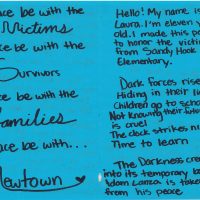 ace be with the
Victims
ce be with the
Survivors
ce be with the
Families
ace be with...
Newtown
Hello! My name is
Laura. I'm eleven y
old. I made this po
to honor the victim
from Sandy Hook
Elementary.
Dark forces rise
Hiding in their li
Children go to scho
Not knowing their
is cruel
The clock strikes ni
Time to learn
The Darkness cree
into its temporary b
Adam Lanza is take
from his peace